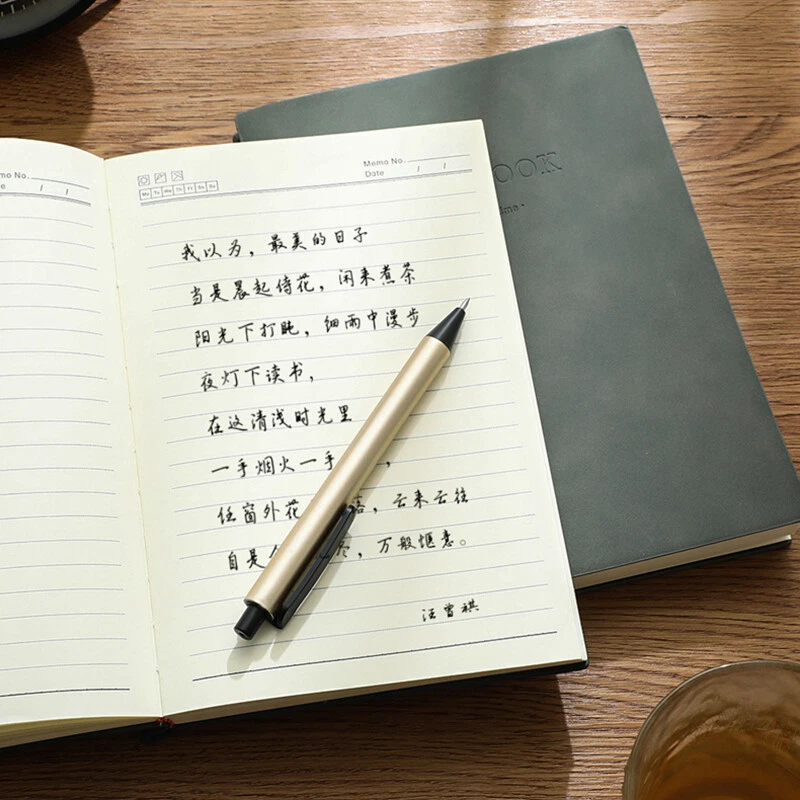 mo No.
e / /
Memo No.
Date / /
Mo Tu We Th Fr Sa Su
我以为，最美的日子
当是晨起侍花，闲来煮茶
阳光下打盹，细雨中漫步
夜灯下读书，
在这清浅时光里
一手烟火一手，
任窗外花，云来云往
自是尽，万般惬意。
汪曾祺
OOK